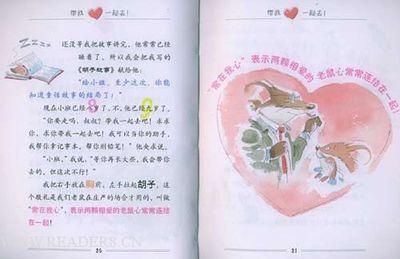 带我 一起去!
还没等我把故事讲完，他常常已经
睡着了。所以我会把我写的
《胡子故事》献给他:
"给小班，至少这次，你能
知道童话故事的结局了!"
现在小班已经8岁了，不，他已经9岁了。
"你要走吗，叔叔?带我一起吧!求求
你，求你带我一起去吧!我可以当你的助手，
我帮你拿记事本，帮你削铅笔!"他央求说。
"小班，"我说，"等你再长大些，我会带你
去的，但这次不行!"
我把右手放在胸前，左手拉起胡子，这
个敬礼是我们老鼠在庄严的场合才用的，叫做
"常在我心"，表示两颗相爱的老鼠心常常连结在
一起!
WWW.READERS.CN
20
带我 一起去!
"常在我心"表示两颗相爱的老鼠心常常连结在一起!
21